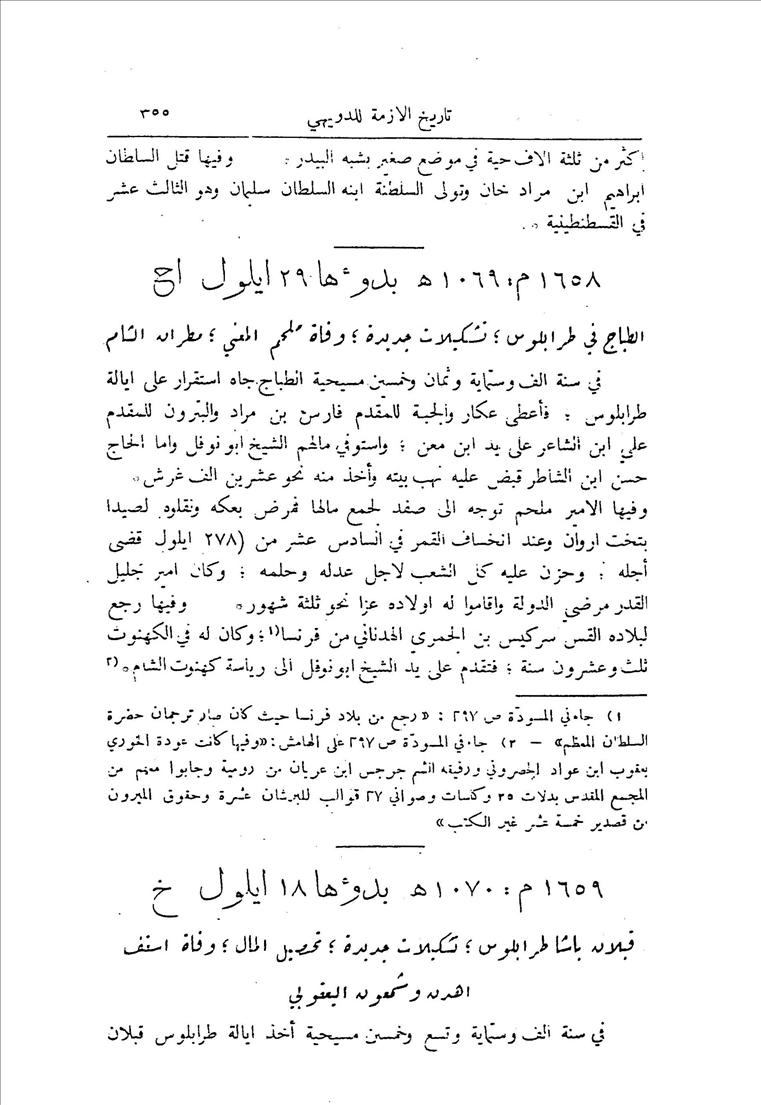 تاريخ الازمنة للدويهي ٣٥٥
اكثر من ثلثة الاف حية في موضع صغير بشبه البيدر . وفيها قتل السلطان
ابراهيم ابن مراد خان وتولى السلطنة ابنه السلطان سليمان وهو الثالث عشر
في القسطنطينية .
١٦٥٨ م : ١٠٦٩ ھ بدوءها ٢٩ ايلول اح
الطباج في طرابلوس ؛ تشكيلات جديدة ؛ وفاة ملحم المعني ؛ مطرانه الشام
في سنة الف وستماية وثمان وخمسين مسيحية انطباج جاه استقرار على ايالة
طرابلوس ؛ فأعطى عكار والجبة للمقدم فارس بن مراد والبترون للمقدم
علي ابن الشاعر على يد ابن معن ؛ واستوفي مالهم الشيخ ابو نوفل واما الحاج
حسن ابن الشاطر قبض عليه نهب بيته وأخذ منه نحو عشرين الف غرش .
وفيها الامير ملحم توجه الى صفد لجمع مالها فمرض بعكه ونقلوه لصيدا
بتخت اروان وعند انخساف القمر في السادس عشر من (٢٧٨ ايلول قضى
أجله ؛ وحزن عليه كل الشعب لاجل عدله وحلمه ؛ وكان امير جليل
القدر مرضي الدولة واقاموا له اولاده عزا نحو ثلثة شهور . وفيها رجع
لبلاده القس سركيس بن الجمري الهدناني من فرنسا (١ ؛ وكان له في الكهنوت
ثلث وعشرون سنة ؛ فتقدم على يد الشيخ ابو نوفل الى رياسة كهنوت الشام . (٢
١) جاء في المسودّة ص ٢٩٧ : «رجع من بلاد فرنسا حيث كان صار ترجمان حضرة
السلطان المعظم» – ٢) جاء في المسودّة ص ٢٩٧ على الهامش : «وفيها كانت عودة الخوري
يعقوب ابن عواد الحصروني ورفيقه الشم جرجس ابن عريان من رومية وجابوا معهم من
المجمع المقدس بدلات ٣٥ وكاسات وصواني ٢٧ قوالب للبرشان عشرة وحقوق الميرون
من قصدير خمسة عشر غير الكتب»
١٦٥٩ م : ١٠٧٠ ھ بدوءها ١٨ ايلول خ
قبلان باشا طرابلوس ؛ تشكيلات جديدة ؛ تحصيل المال ؛ وفاة اسقف
اهدن وشمعون البقوليي
في سنة الف وستماية وتسع وخمسين مسيحية أخذ ايالة طرابلوس قبلان